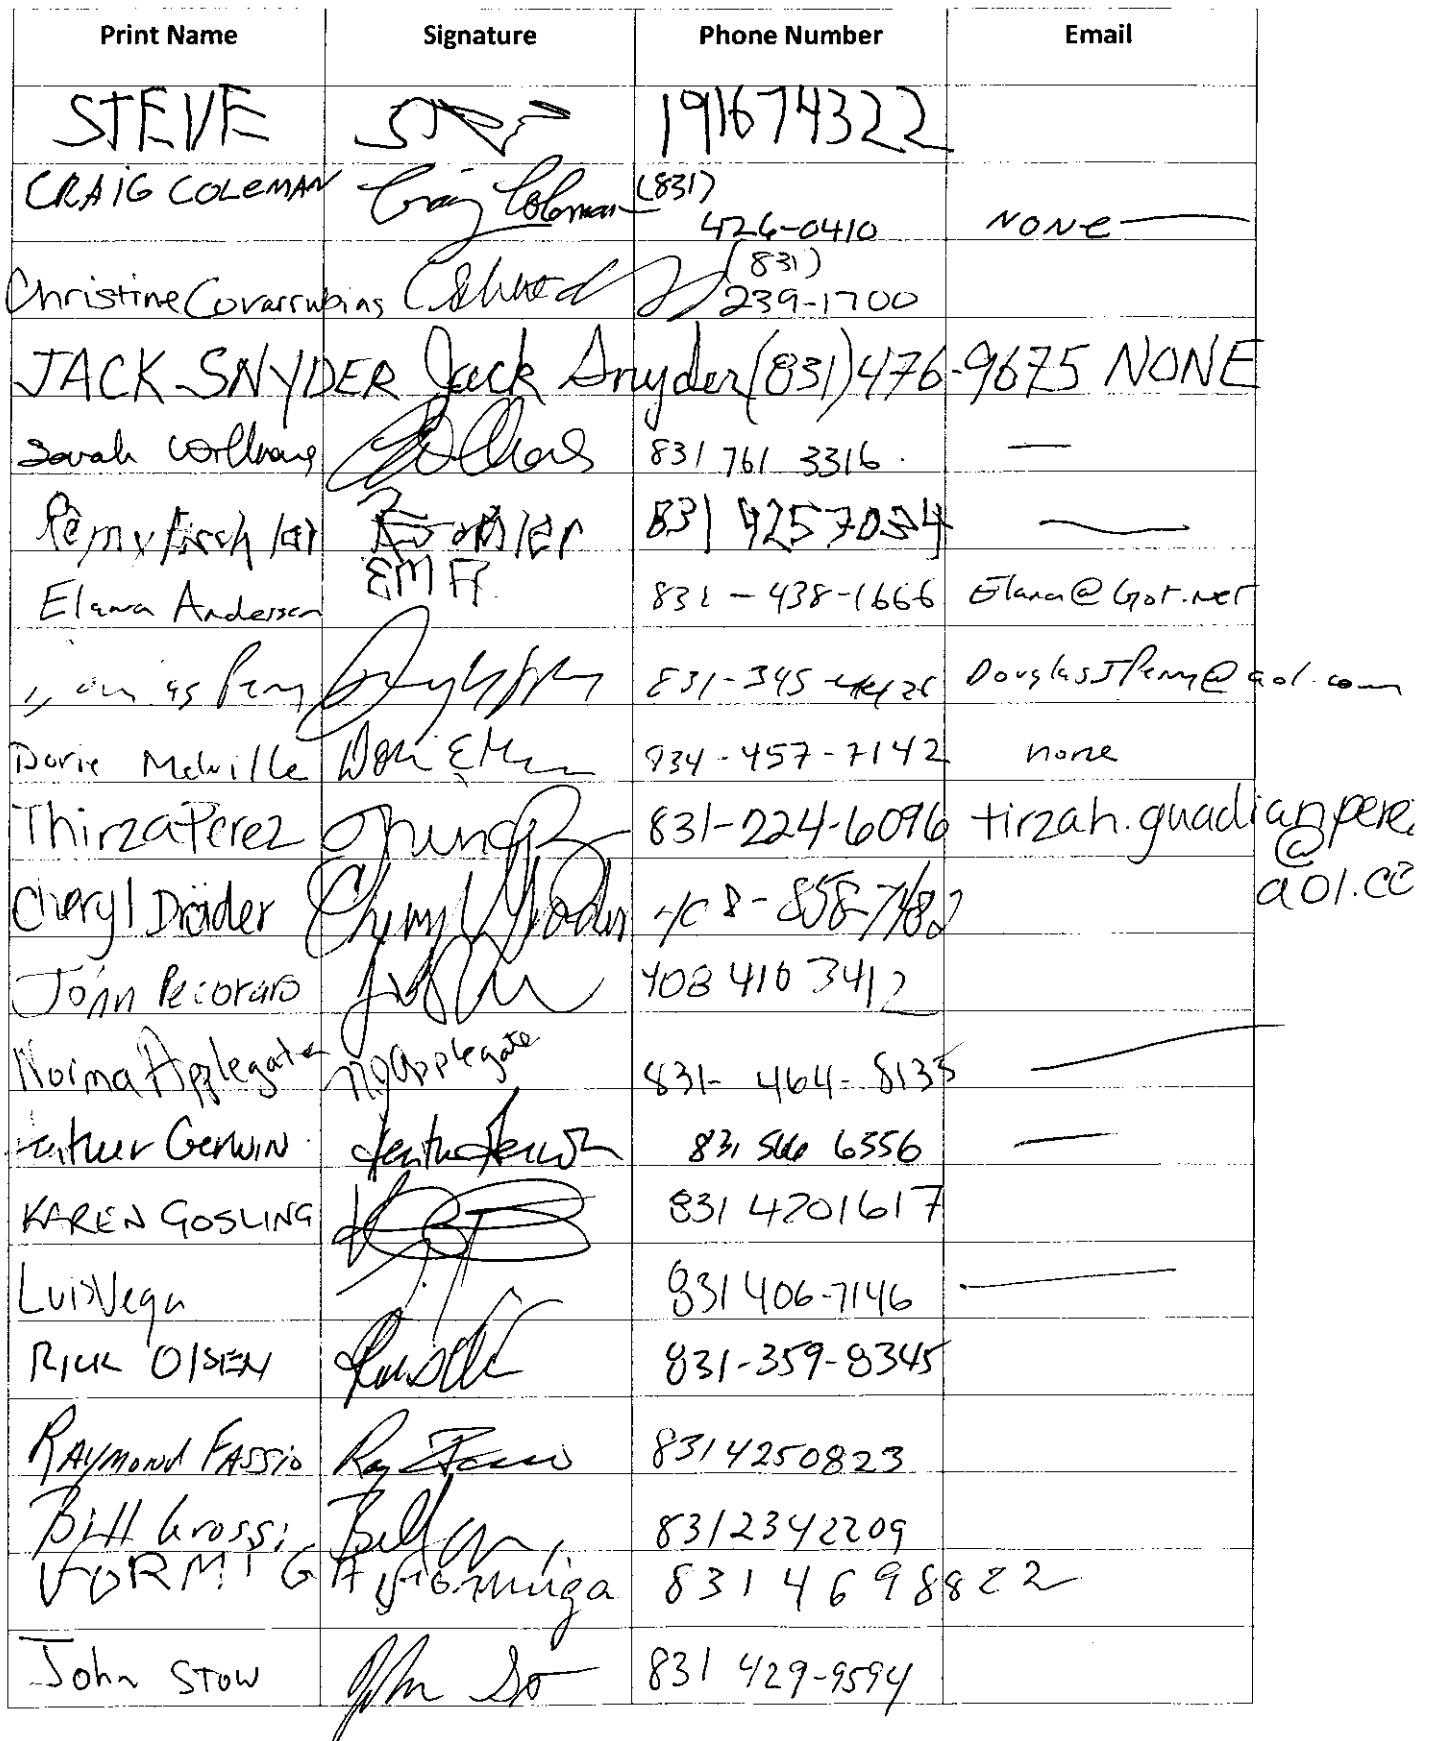 Print Name Signature Phone Number Email
STEVE 191674322
CRAIG COLEMAN Craig Coleman (831)
426-0410 NONE
Christine Covarrubias (831)
239-1700
JACK SNYDER Jack Snyder (831) 476-9675 NONE
Sarah Williams 831 761 3316
Remy 831 4257034
Elana Anderson EMA 831-438-1666 Elana@Got.net
Perry 831-345- DouglasJPerry@aol.com
Dorie Melville 934-457-7142 none
Thirza Perez 831-224-6096 tirzah.guadianpere
@
Cheryl Drader Cheryl Drader 408-858-7482 aol.co
John Pecoraro 408 410 3412
Norma Applegate NJ Applegate 831-464-8135
Gerwin 831 566 6356
KAREN GOSLING 831 4201617
Luis Vega 831 406-7146
RICK OLSEN 831-359-8345
RAYMOND FASSIO Ray Fassio 8314250823
Bill Grossi Bill 8312342209
FORMIGA Formiga 831 4698822
John STOW John 831 429-9594